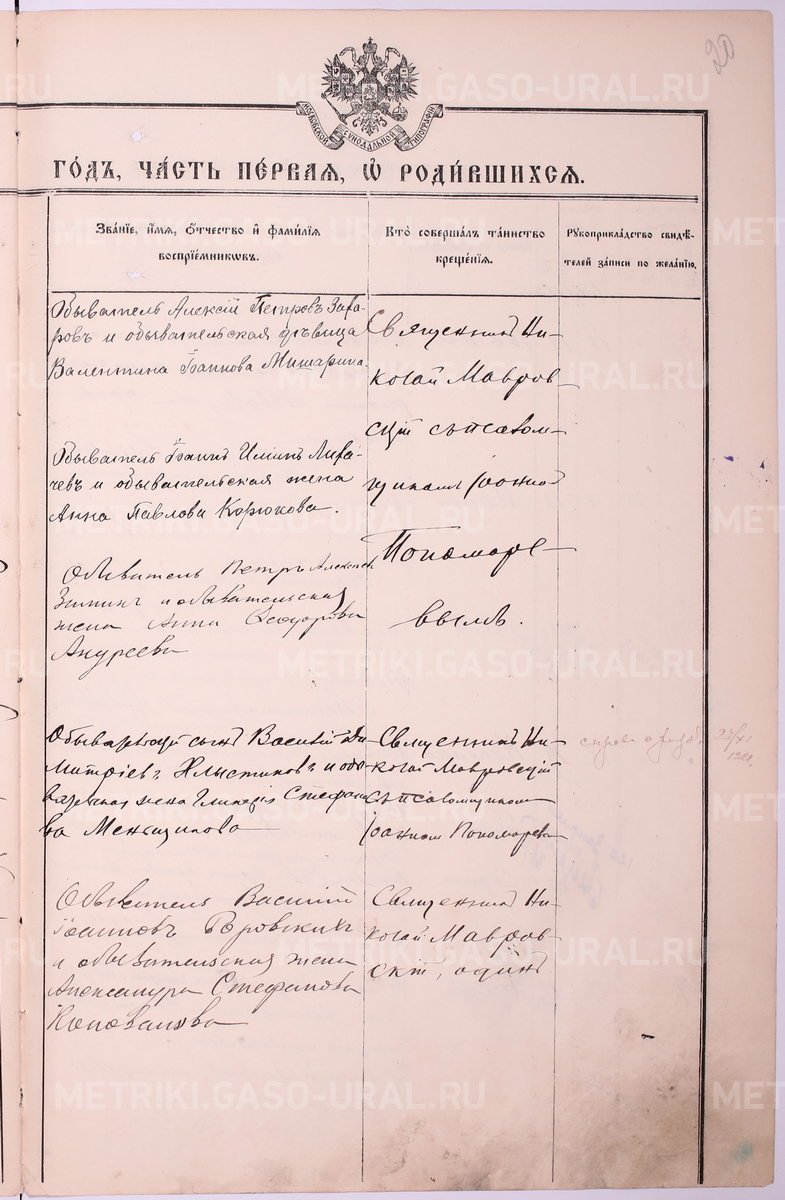 20
МОСКОВСКОЙ СѴНОДАЛЬНОЙ ТИПОГРАФІИ
ГО́ДЪ, ЧА́СТЬ ПЕ́РВАѦ, Ѡ҆ РОДИ́ВШИХСѦ.
Зва́нїе, и҆́мѧ, ѻ҆́тчество и҆ фамѝлїѧ
воспрїе́мникѡвъ.
Кто̀ соверша́лъ та́инство
креще́нїѧ.
Рꙋкоприкла́дство свидѣ́-
телей за́писи по жела́нїю.
Обыватель Алексій Петровъ Заха-
ровъ и обывательская дѣвица
Валентина Іоаннова Мишарина.
Священникъ Ни-
колай Мавров-
скій съ псалом-
щикомъ Іоанном
Пономаре-
вымъ.
Обыватель Іоаннъ Лиха-
чевъ и обывательская жена
Анна Павлова Корюкова.
Обыватель Петръ Алексѣев
Зыминъ и обывательская
жена Анна Ѳеодорова
Андреева
Обывательскій сынъ Василій Ди-
митріевъ Хлыстиковъ и обы-
вательская жена Гликерія Стефано-
ва Меньщикова
Священникъ Ни-
колай Мавровскій
съ псаломщиком
Іоанном Пономаревым
справка
Обыватель Василій
Іоанновъ Боровскихъ
и обывательская жена
Александра Стефанова
Коновалова
Священникъ Ни-
колай Мавров-
скій, одинъ
METRIKI.GASO-URAL.RU